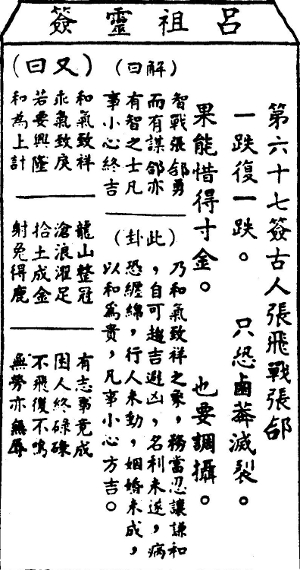 呂祖靈簽
第六十七簽古人張飛戰張郃
一跌復一跌。 只恐鹵莽滅裂。
果能惜得寸金。 也要調攝。
(解曰)
智戰張郃勇
而有謀郃亦
有智之士凡
事小心終吉
(此卦)
乃和氣致祥之象，務當忍讓謙和
，自可趨吉避凶，名利未遂，病
恐纏綿，行人未動，姻婚未成，
以和為貴，凡事小心方吉。
(又曰)
和氣致祥
乖氣致戾
若要興隆
和為上計
龍山整冠
滄浪濯足
拾土成金
射兔得鹿
有志事竟成
因人終碌碌
不飛復不鳴
無勞亦無辱